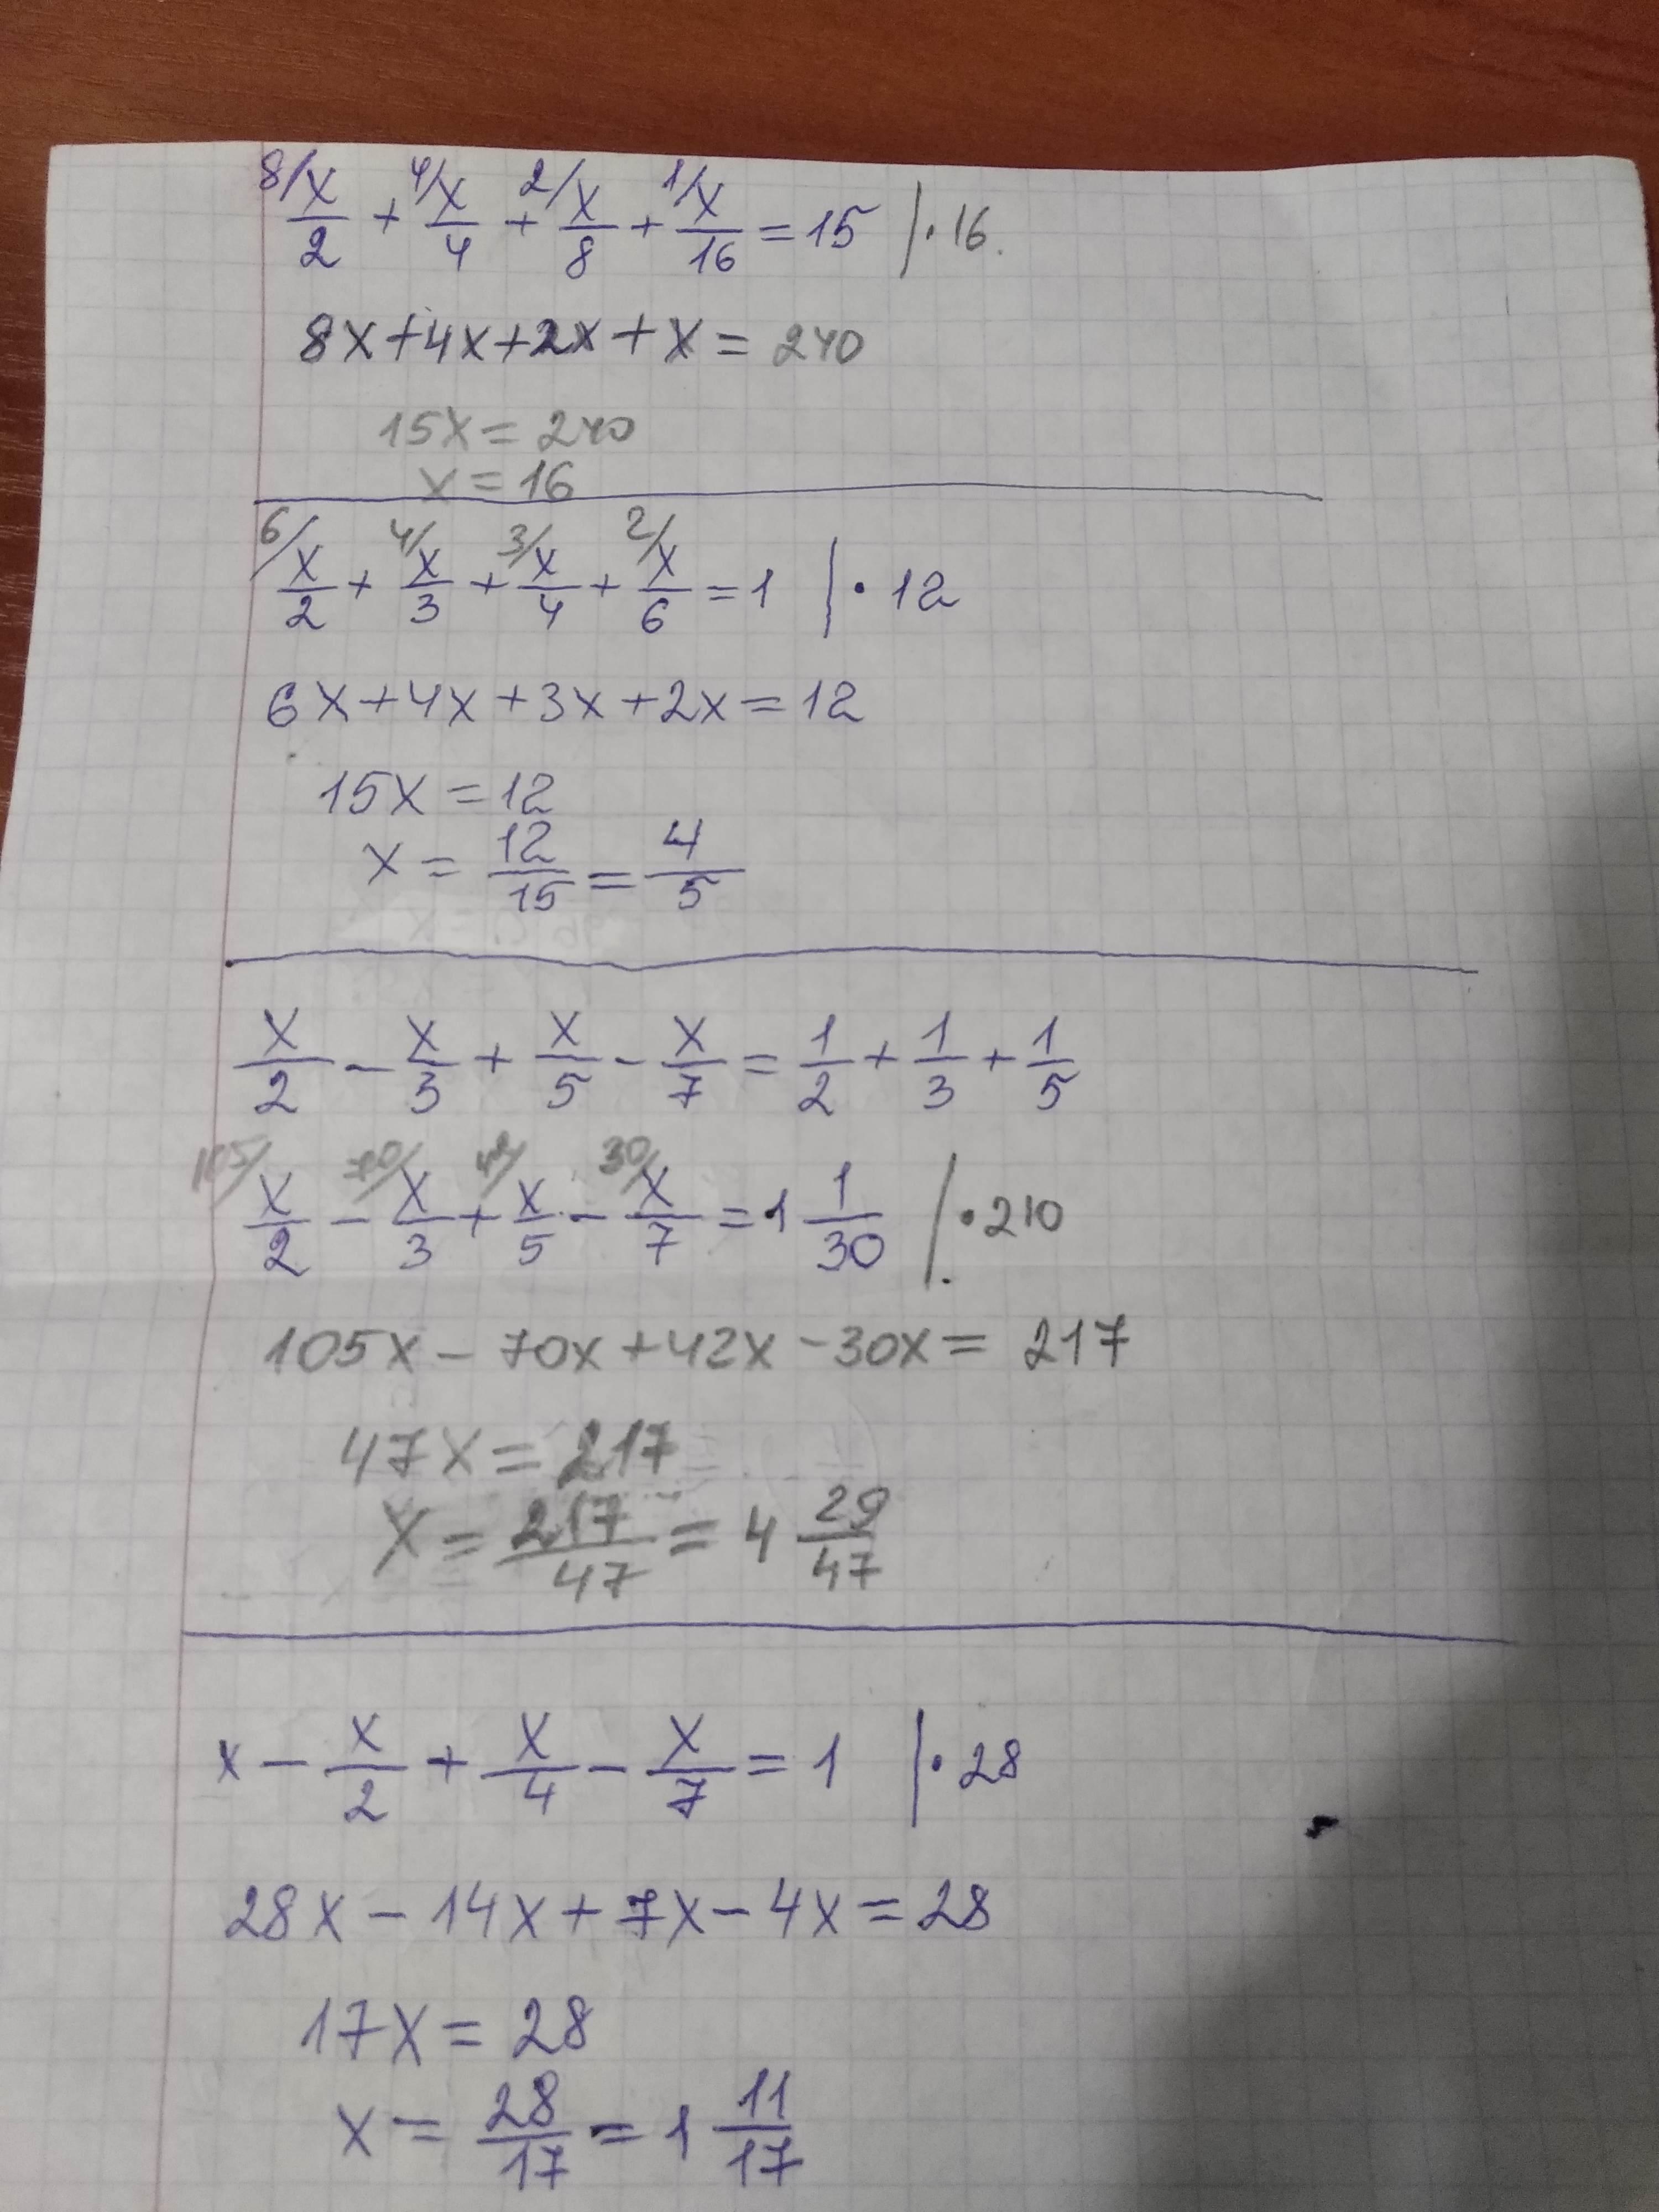 8/x/2 + 4/x/4 + 2/x/8 + 1/x/16 = 15 | · 16.
8x + 4x + 2x + x = 240
15x = 240
x = 16
6/x/2 + 4/x/3 + 3/x/4 + 2/x/6 = 1 | · 12
6x + 4x + 3x + 2x = 12
15x = 12
x = 12/15 = 4/5
x/2 - x/3 + x/5 - x/7 = 1/2 + 1/3 + 1/5
105/x/2 - 70/x/3 + 42/x/5 - 30/x/7 = 1 1/30 | · 210
105x - 70x + 42x - 30x = 217
47x = 217
x = 217/47 = 4 29/47
x - x/2 + x/4 - x/7 = 1 | · 28
28x - 14x + 7x - 4x = 28
17x = 28
x = 28/17 = 1 11/17